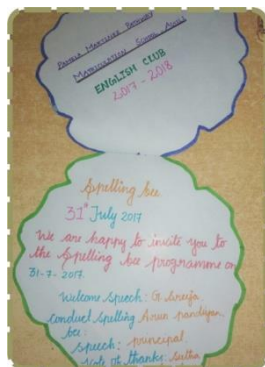 Matriculation School
ENGLISH CLUB
2017 - 2018
Spelling bee
31st July 2017
We are happy to invite you to
the spelling bee programme on
31-7-2017.
Welcome speech:
Conduct spelling Arun pandiyan.
bee:
Speech: principal.
Vote of thanks: